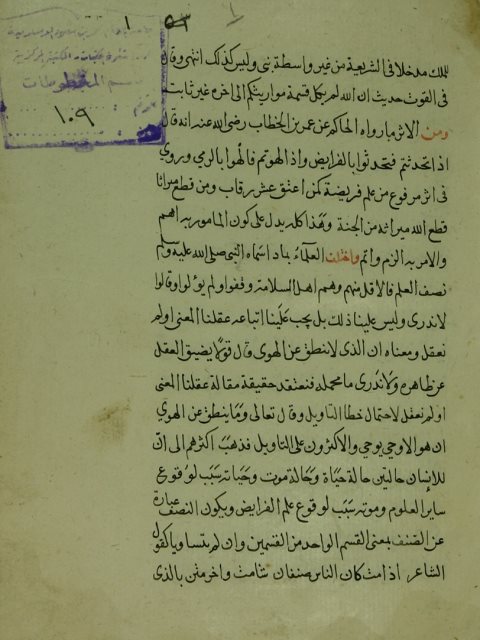 للملك مدخلا فى الشريعة من غير واسطة نبى وليس كذلك انتهى وقال
فى القوت حديث ان الله لم يكل قسمة مواريثكم الى اخره غير ثابت
ومن الاثر ما رواه الحاكم عن عمر بن الخطاب رضى الله عنه انه قال
اذا تحدثتم فتحدثوا بالفرايض واذا لهوتم فالهوا بالرمي وروي
فى اثر مرفوع من علم فريضة كمن اعتق عشر رقاب ومن قطع ميراثا
قطع الله ميراثه من الجنة وهذا كله يدل على كون المامور به اهم
والامر به الزم واتم واختلف العلماء بما ذا سماه النبى صلى الله عليه وسلم
نصف العلم فالاقل منهم وهم اهل السلامة وقفوا ولم يؤلوا وقالوا
لا ندرى وليس علينا ذلك بل يجب علينا اتباعه عقلنا المعنى او لم
نعقل ومعناه ان الذى لا ينطق عن الهوى قال قولا يضيق العقل
عن ظاهره ولا ندرى ما محمله فنعتقد حقيقة مقالة عقلنا المعنى
او لم نعقل لاحتمال خطا التاويل وقال تعالى وما ينطق عن الهوي
ان هو الا وحي يوحي والاكثرون على التاويل فذهب اكثرهم الى ان
للانسان حالتين حالة حياة وحالة موت وحياته سبب لوقوع
ساير العلوم وموته سبب لوقوع علم الفرايض ويكون النصف عبارة
عن الصنف بمعنى القسم الواحد من القسمين وان لم يتساويا كقول
الشاعر اذا مت كان الناس صنفان شامت واخر مثن بالذى
قسم المخطوطات
١٠٩